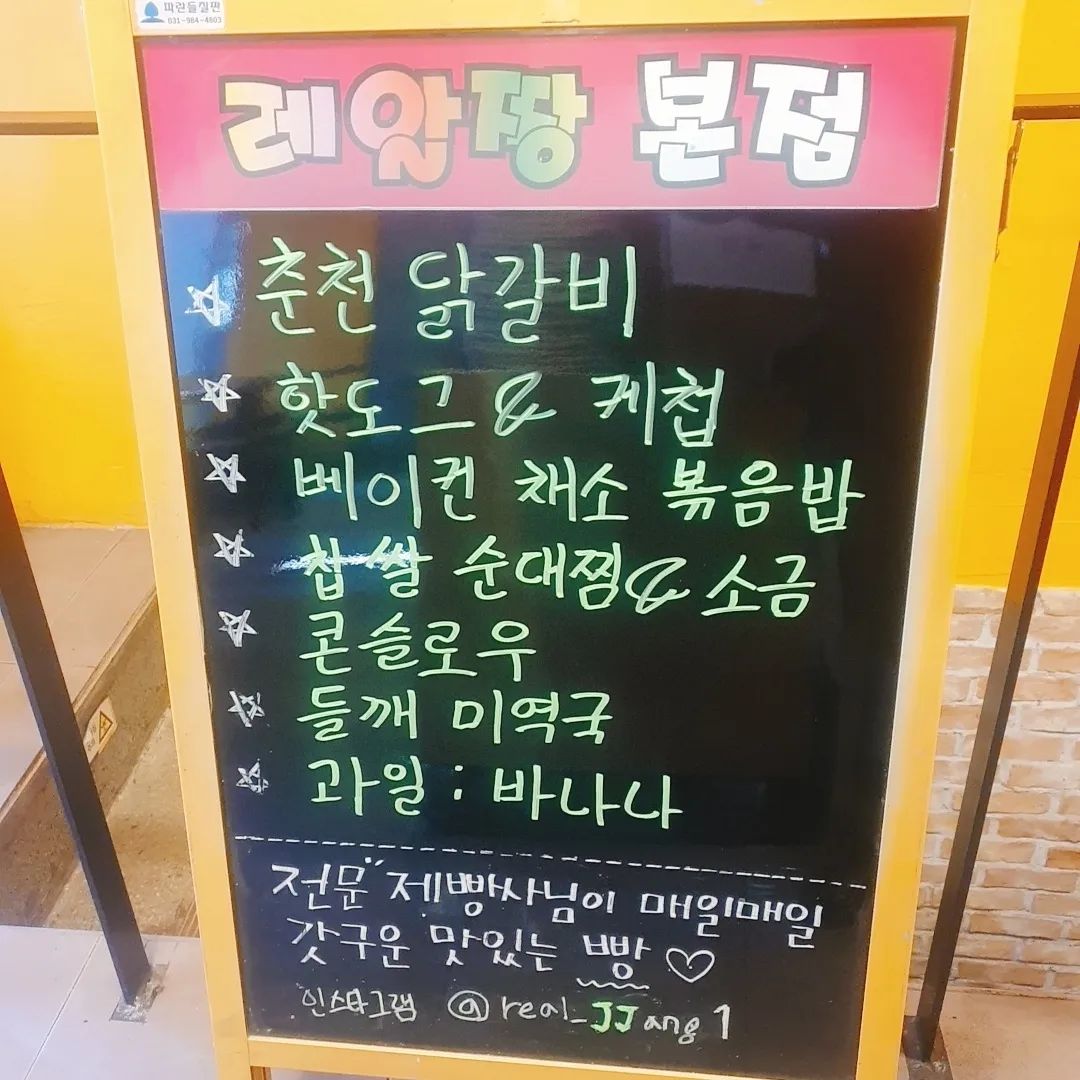 파란들칠판
031-984-4803
레알짱 본점
춘천 닭갈비
핫도그 & 케첩
베이컨 채소 볶음밥
찹쌀 순대찜 & 소금
콘슬로우
들깨 미역국
과일 : 바나나
전문 제빵사님이 매일매일
갓구운 맛있는 빵 ♡
인스타그램 @real_JJang1